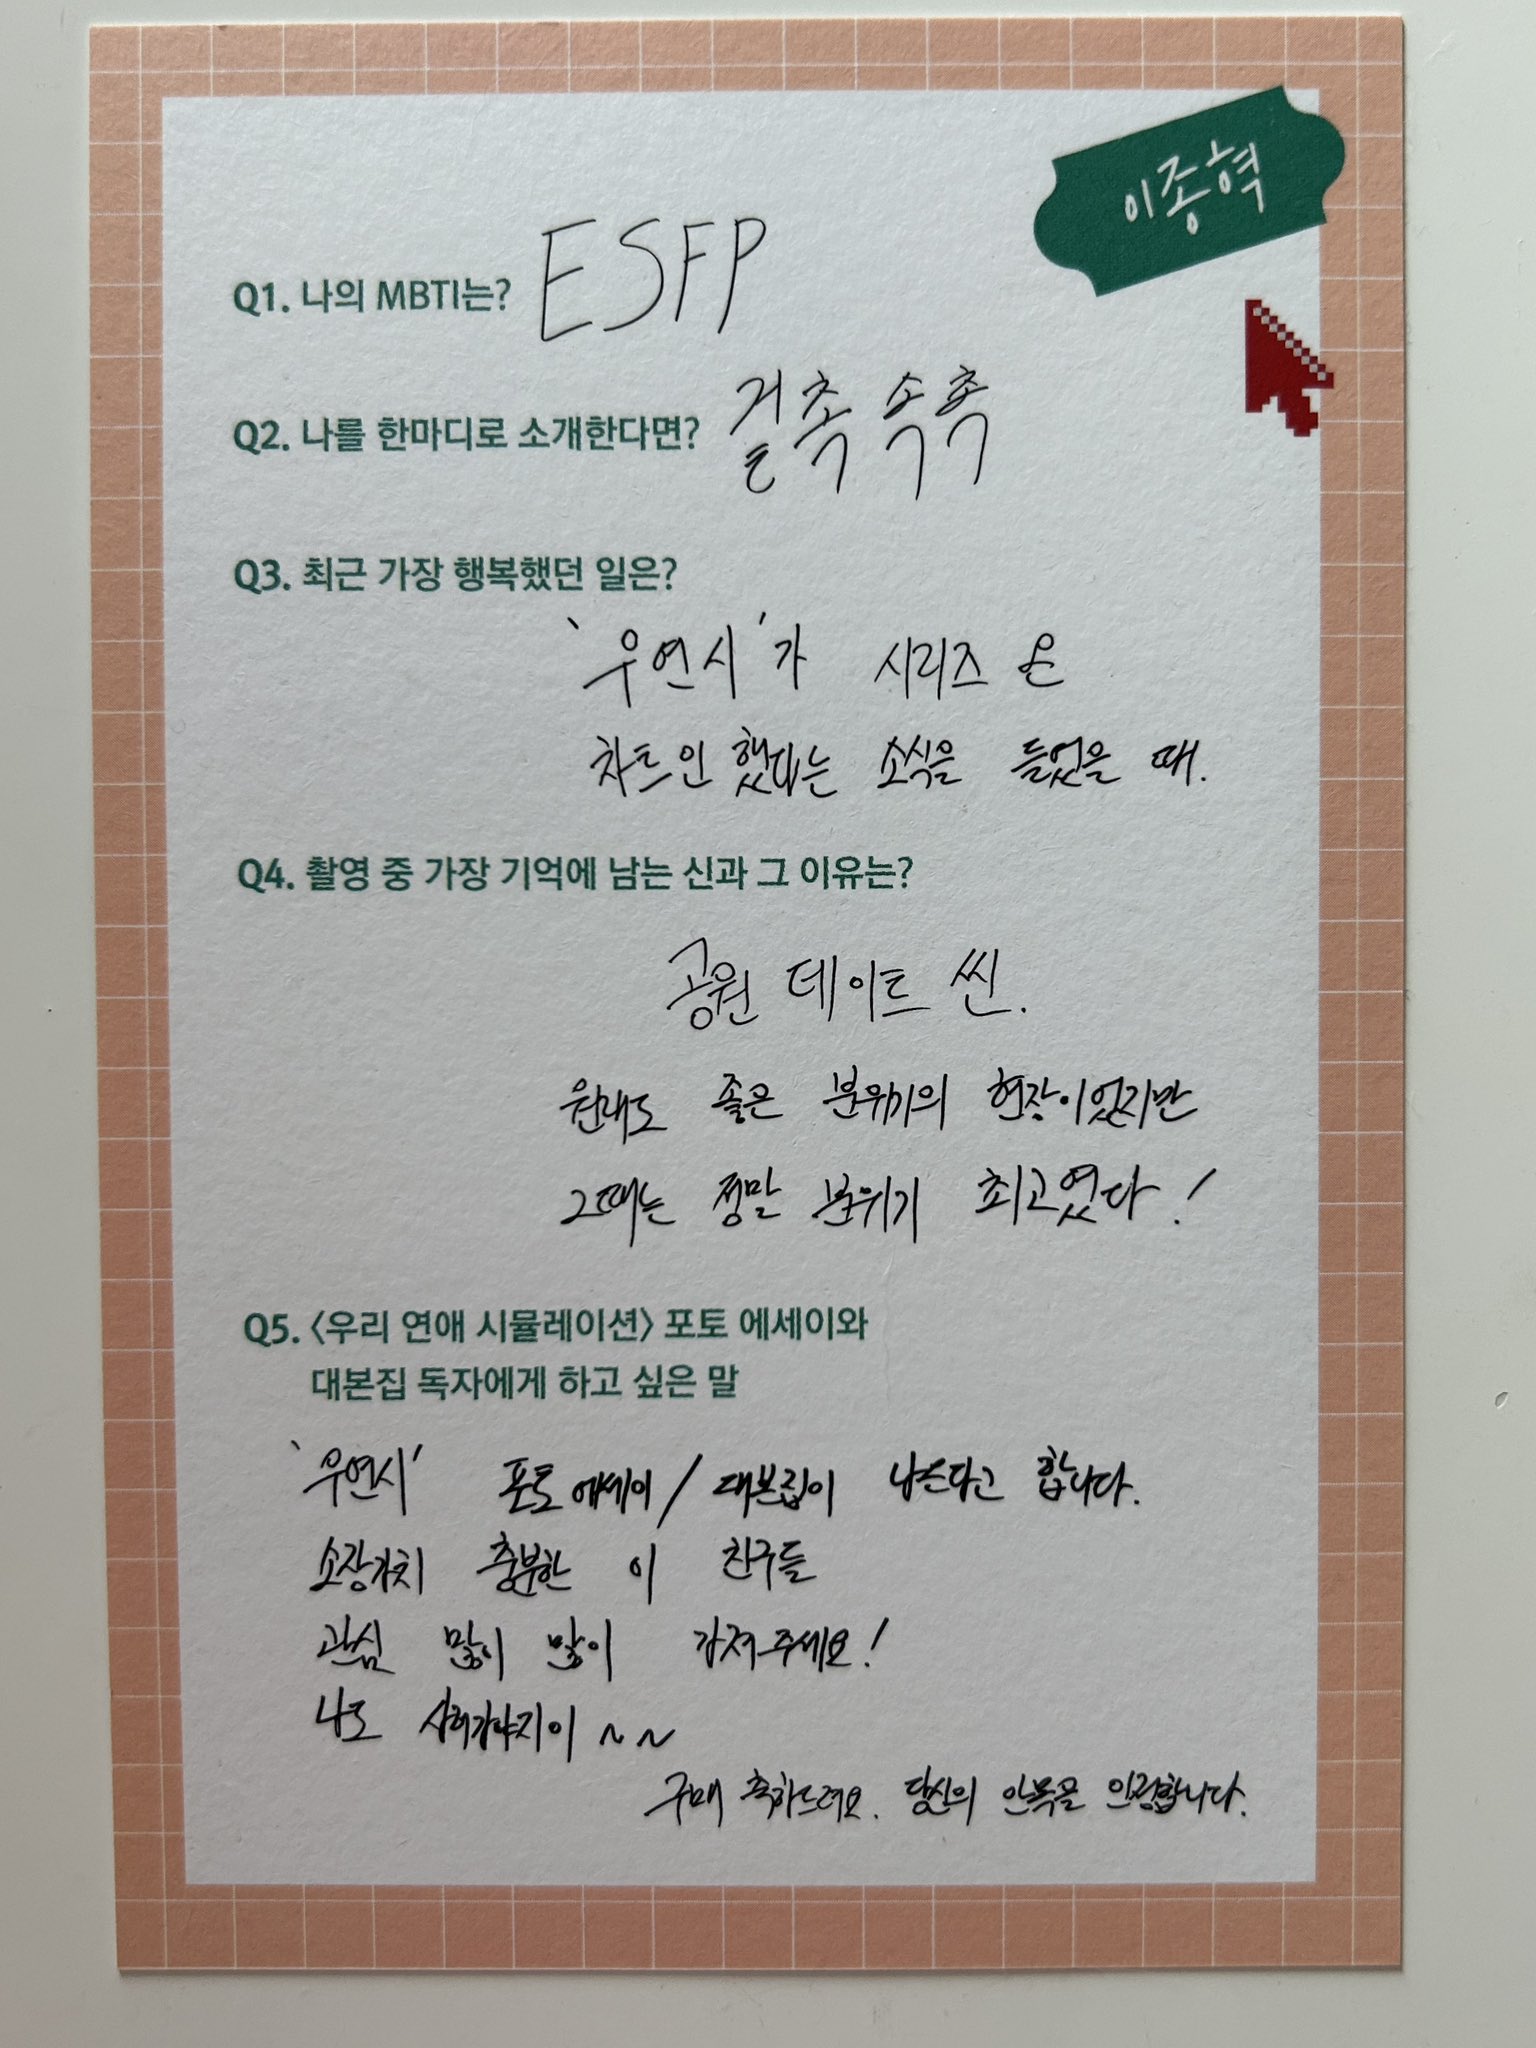 이종혁
Q1. 나의 MBTI는? ESFP
Q2. 나를 한마디로 소개한다면? 겉촉속촉
Q3. 최근 가장 행복했던 일은?
'우연시'가 시리즈 온
차트인 했다는 소식을 들었을 때.
Q4. 촬영 중 가장 기억에 남는 신과 그 이유는?
공원 데이트 씬.
원래도 좋은 분위기의 현장이었지만
그때는 정말 분위기 최고였다!
Q5. 〈우리 연애 시뮬레이션〉 포토 에세이와
대본집 독자에게 하고 싶은 말
'우연시' 포토에세이/대본집이 나온다고 합니다.
소장가치 충분한 이 친구들
관심 많이 많이 가져주세요!
나도 사러가야지이~~
구매 축하드려요. 당신의 안목을 인정합니다.